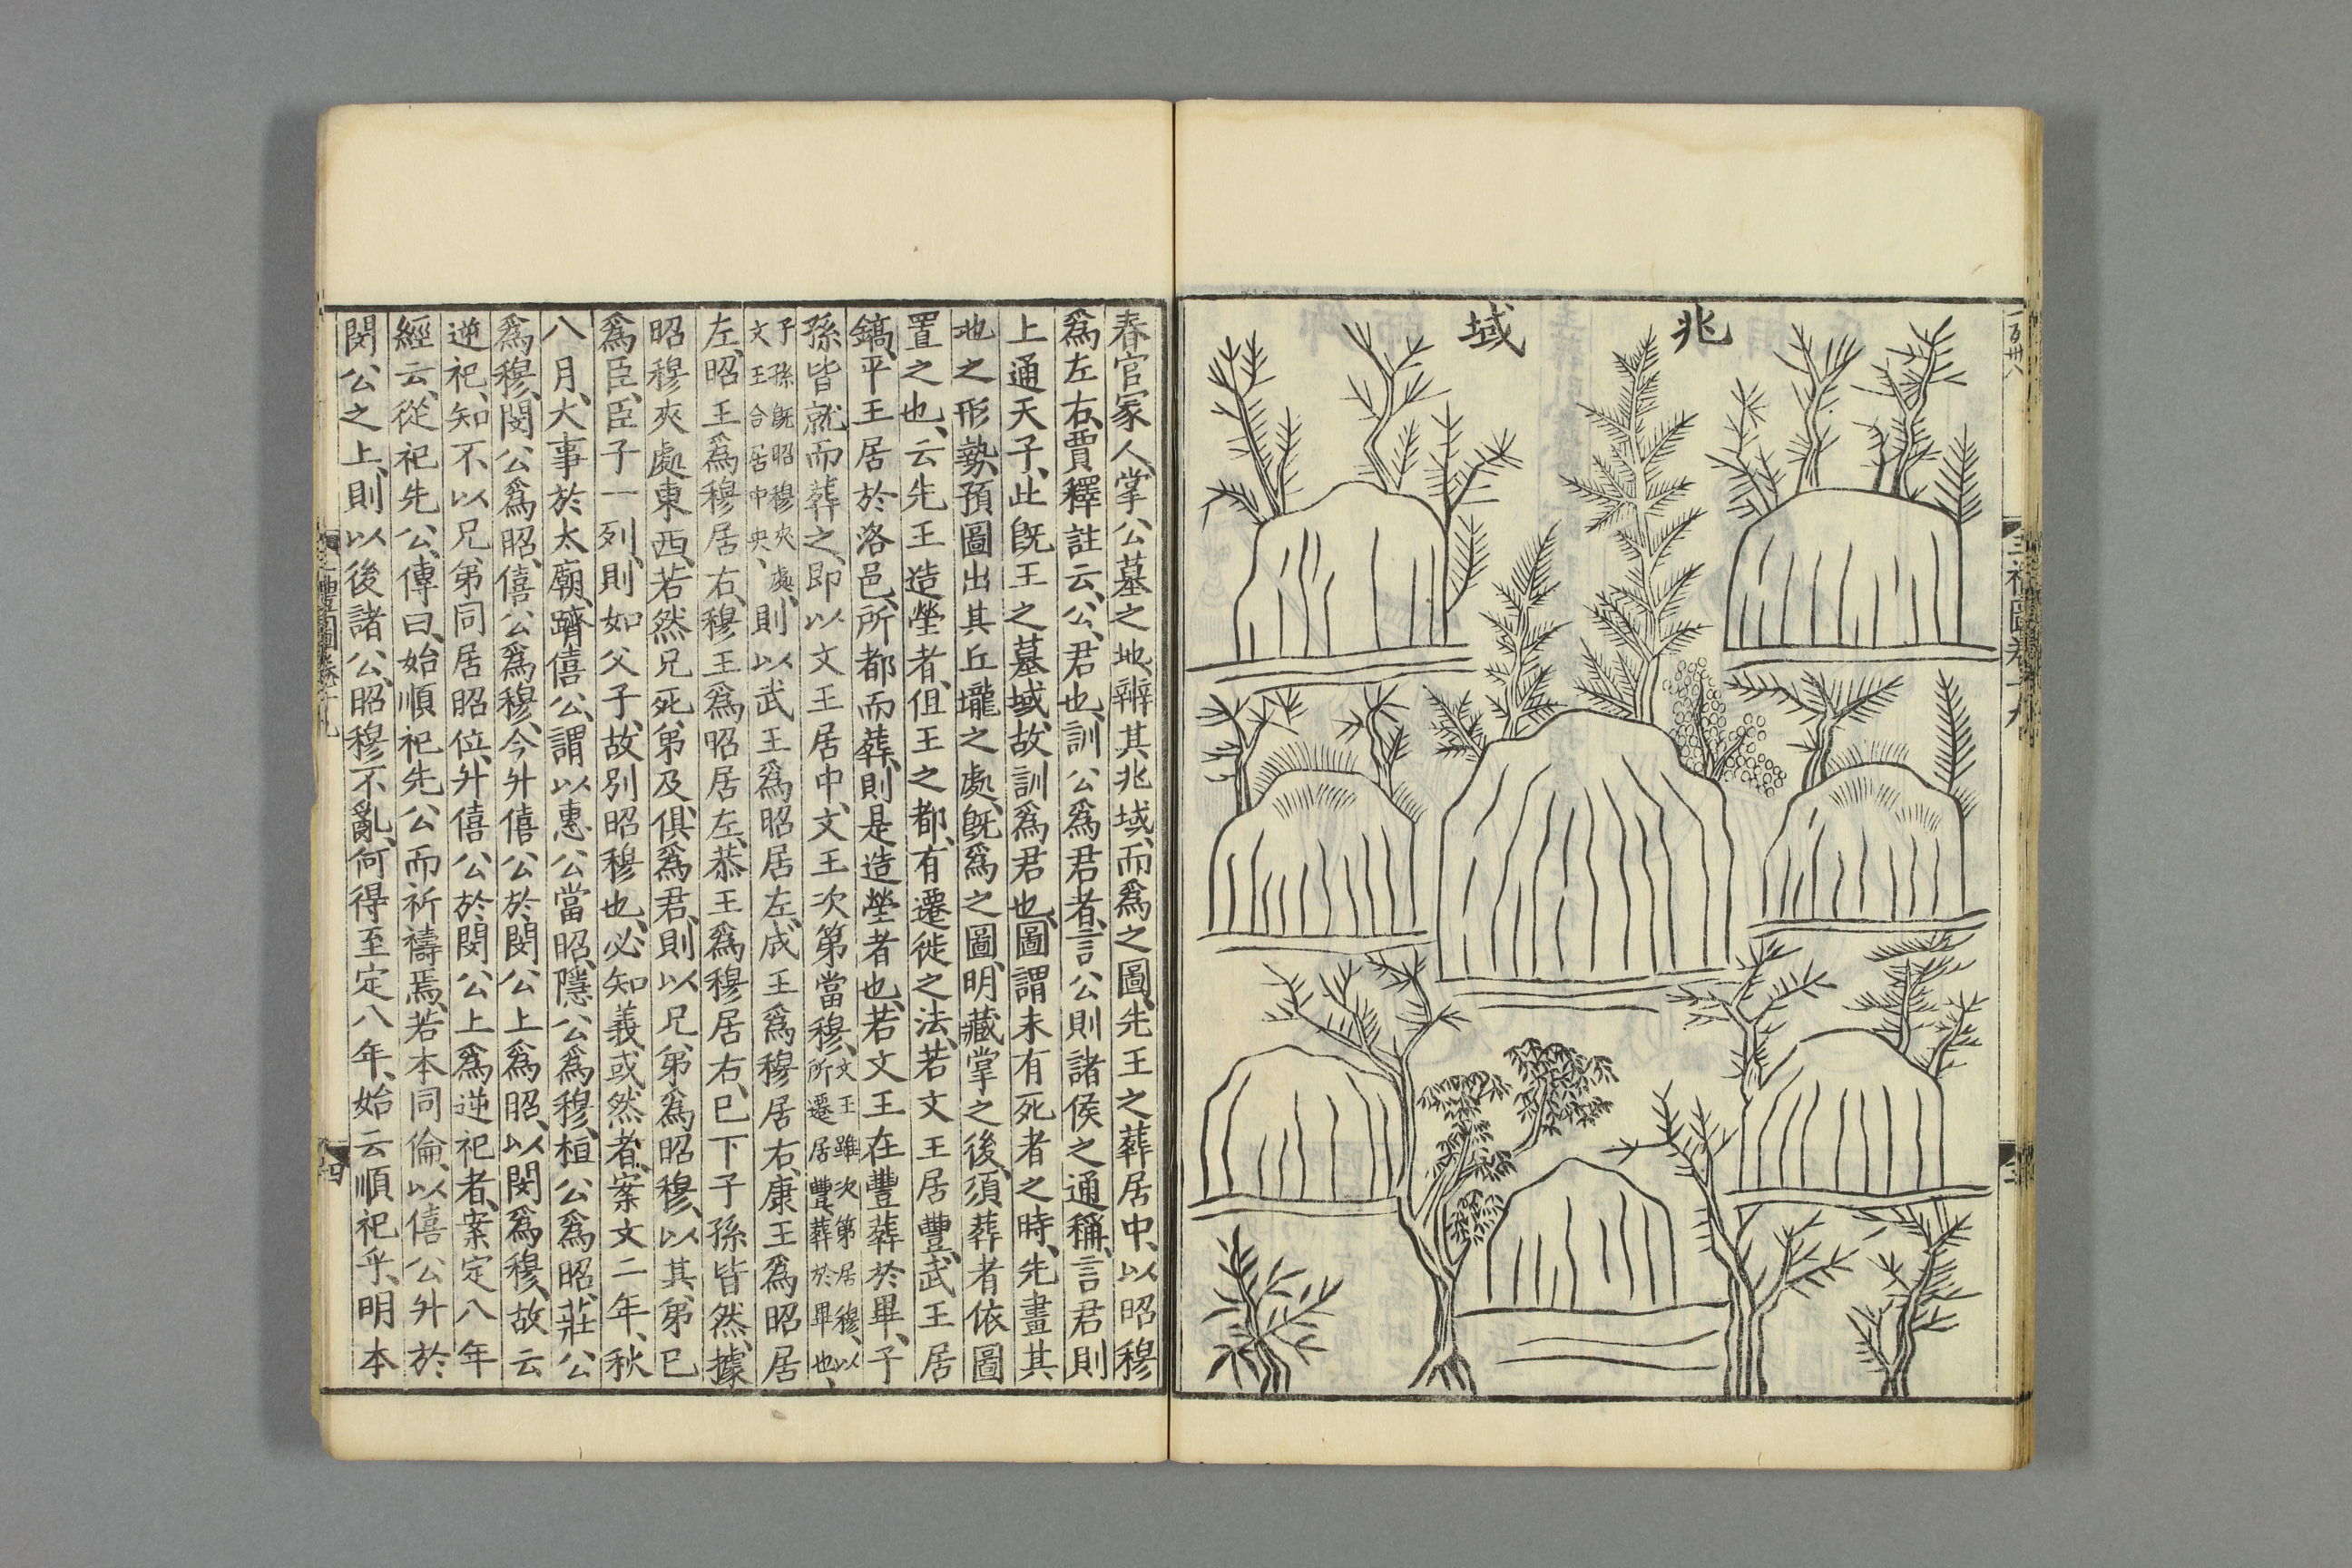 兆域
春官冢人、掌公墓之地、辨其兆域、而爲之圖、先王之葬居中、以昭穆
爲左右、賈釋註云、公、君也、訓公爲君者、言公則諸侯之通稱、言君則
上通天子、此旣王之墓域、故訓爲君也、圖謂未有死者之時、先畫其
地之形勢、預圖出其丘壠之處、旣爲之圖、明藏掌之後、須葬者依圖
置之也、云先王造塋者、但王之都、有遷徙之法、若文王居豐、武王居
鎬、平王居於洛邑、所都而葬、則是造塋者也、若文王在豐葬於畢、子
孫皆就而葬之、即以文王居中、文王次第當穆、文王雖次第居穆、以所遷居豐、葬於畢也、
子孫旣昭穆夾處、文王合居中央、則以武王爲昭居左、成王爲穆居右、康王爲昭居
左、昭王爲穆居右、穆王爲昭居左、恭王爲穆居右、已下子孫皆然、據
昭穆夾處東西、若然兄死弟及、俱爲君、則以兄弟爲昭穆、以其弟已
爲臣、臣子一列、則如父子、故別昭穆也、必知義或然者、案文二年、秋
八月、大事於太廟、躋僖公、謂以惠公當昭、隱公爲穆、桓公爲昭、莊公
爲穆、閔公爲昭、僖公爲穆、今升僖公於閔公上爲昭、以閔爲穆、故云
逆祀、知不以兄弟同居昭位、升僖公於閔公上爲逆祀者、案定八年
經云、從祀先公、傳曰、始順祀先公而祈禱焉、若本同倫、以僖公升於
閔公之上、則以後諸公、昭穆不亂、何得至定八年、始云順祀乎、明本